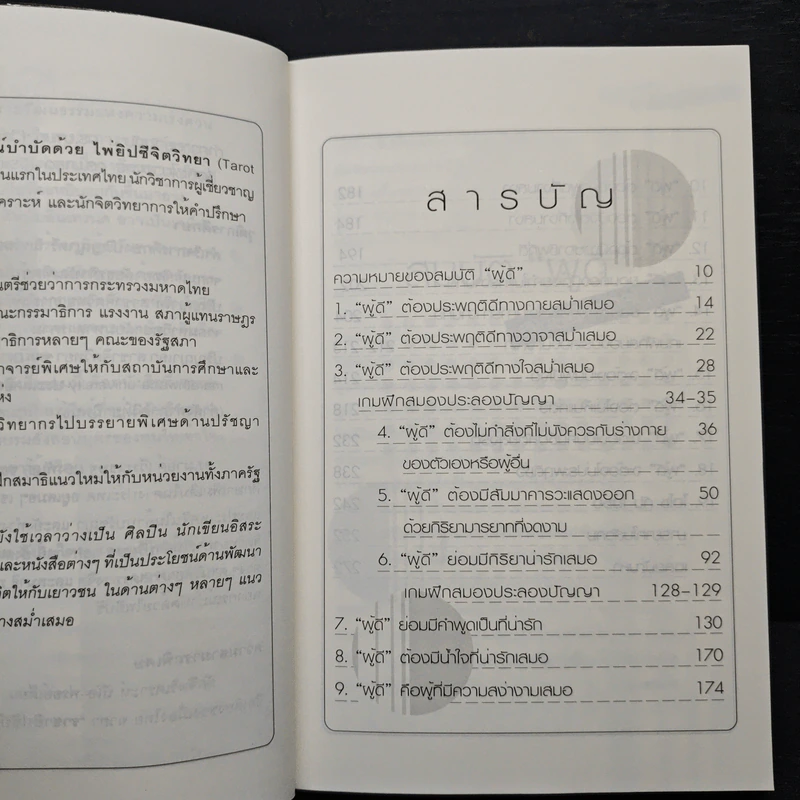 น์บำบัดด้วย ไพ่ยิปซีจิตวิทยา (Tarot
นแรกในประเทศไทย นักวิชาการผู้เชี่ยวชาญ
คราะห์ และนักจิตวิทยาการให้คำปรึกษา
นตรีช่วยว่าการกระทรวงมหาดไทย
ณะกรรมาธิการ แรงงาน สภาผู้แทนราษฎร
าธิการหลายๆ คณะของรัฐสภา
าจารย์พิเศษให้กับสถาบันการศึกษาและ
ห่ง
วิทยากรไปบรรยายพิเศษด้านปรัชญา
ฝึกสมาธิแนวใหม่ให้กับหน่วยงานทั้งภาครัฐ
ยังใช้เวลาว่างเป็น ศิลปิน นักเขียนอิสระ
และหนังสือต่างๆ ที่เป็นประโยชน์ด้านพัฒนา
จิตให้กับเยาวชน ในด้านต่างๆ หลายๆ แนว
างสม่ำเสมอ
สารบัญ
ความหมายของสมบัติ "ผู้ดี" 10
1. "ผู้ดี" ต้องประพฤติดีทางกายสม่ำเสมอ 14
2. "ผู้ดี" ต้องประพฤติดีทางวาจาสม่ำเสมอ 22
3. "ผู้ดี" ต้องประพฤติดีทางใจสม่ำเสมอ 28
เกมฝึกสมองประลองปัญญา 34-35
4. "ผู้ดี" ต้องไม่ทำสิ่งที่ไม่บังควรกับร่างกาย 36
ของตัวเองหรือผู้อื่น
5. "ผู้ดี" ต้องมีสัมมาคารวะแสดงออก 50
ด้วยกิริยามารยาทที่งดงาม
6. "ผู้ดี" ย่อมมีกิริยาน่ารักเสมอ 92
เกมฝึกสมองประลองปัญญา 128-129
7. "ผู้ดี" ย่อมมีคำพูดเป็นที่น่ารัก 130
8. "ผู้ดี" ต้องมีน้ำใจที่น่ารักเสมอ 170
9. "ผู้ดี" คือผู้ที่มีความสง่างามเสมอ 174